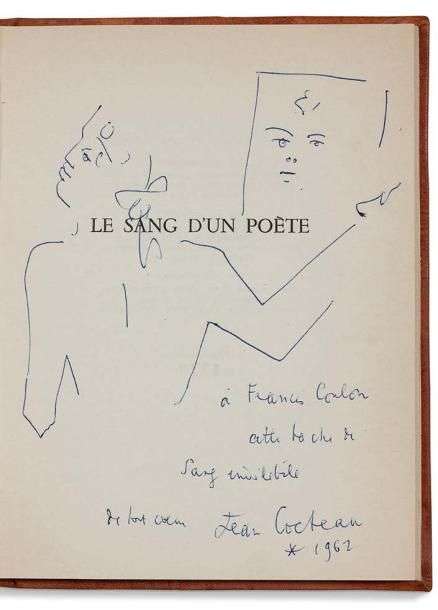 LE SANG D'UN POÈTE
à Francis Coulon
cette tache de
Sang
de tout coeur Jean Cocteau
* 1962